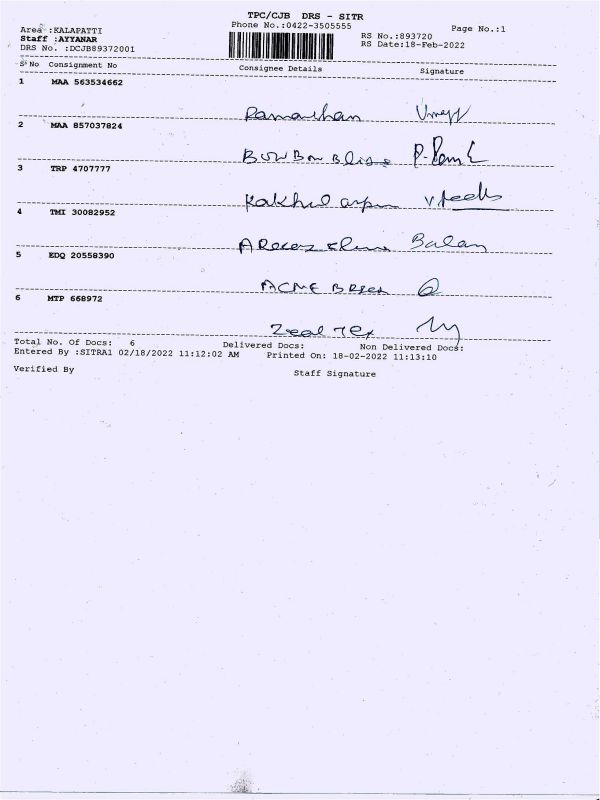 TPC/CJB DRS - SITR
Area :KALAPATTI Phone No.:0422-3505555 Page No.:1
Staff :AYYANAR RS No.:893720
DRS No. :DCJB89372001 RS Date:18-Feb-2022
S No Consignment No Consignee Details Signature
1 MAA 563534662
2 MAA 857037824
3 TRP 4707777
4 TMI 30082952
Balan
5 EDQ 20558390
ACME
6 MTP 668972
Zeal Tex
Total No. Of Docs: 6 Delivered Docs: Non Delivered Docs:
Entered By :SITRA1 02/18/2022 11:12:02 AM Printed On: 18-02-2022 11:13:10
Verified By Staff Signature